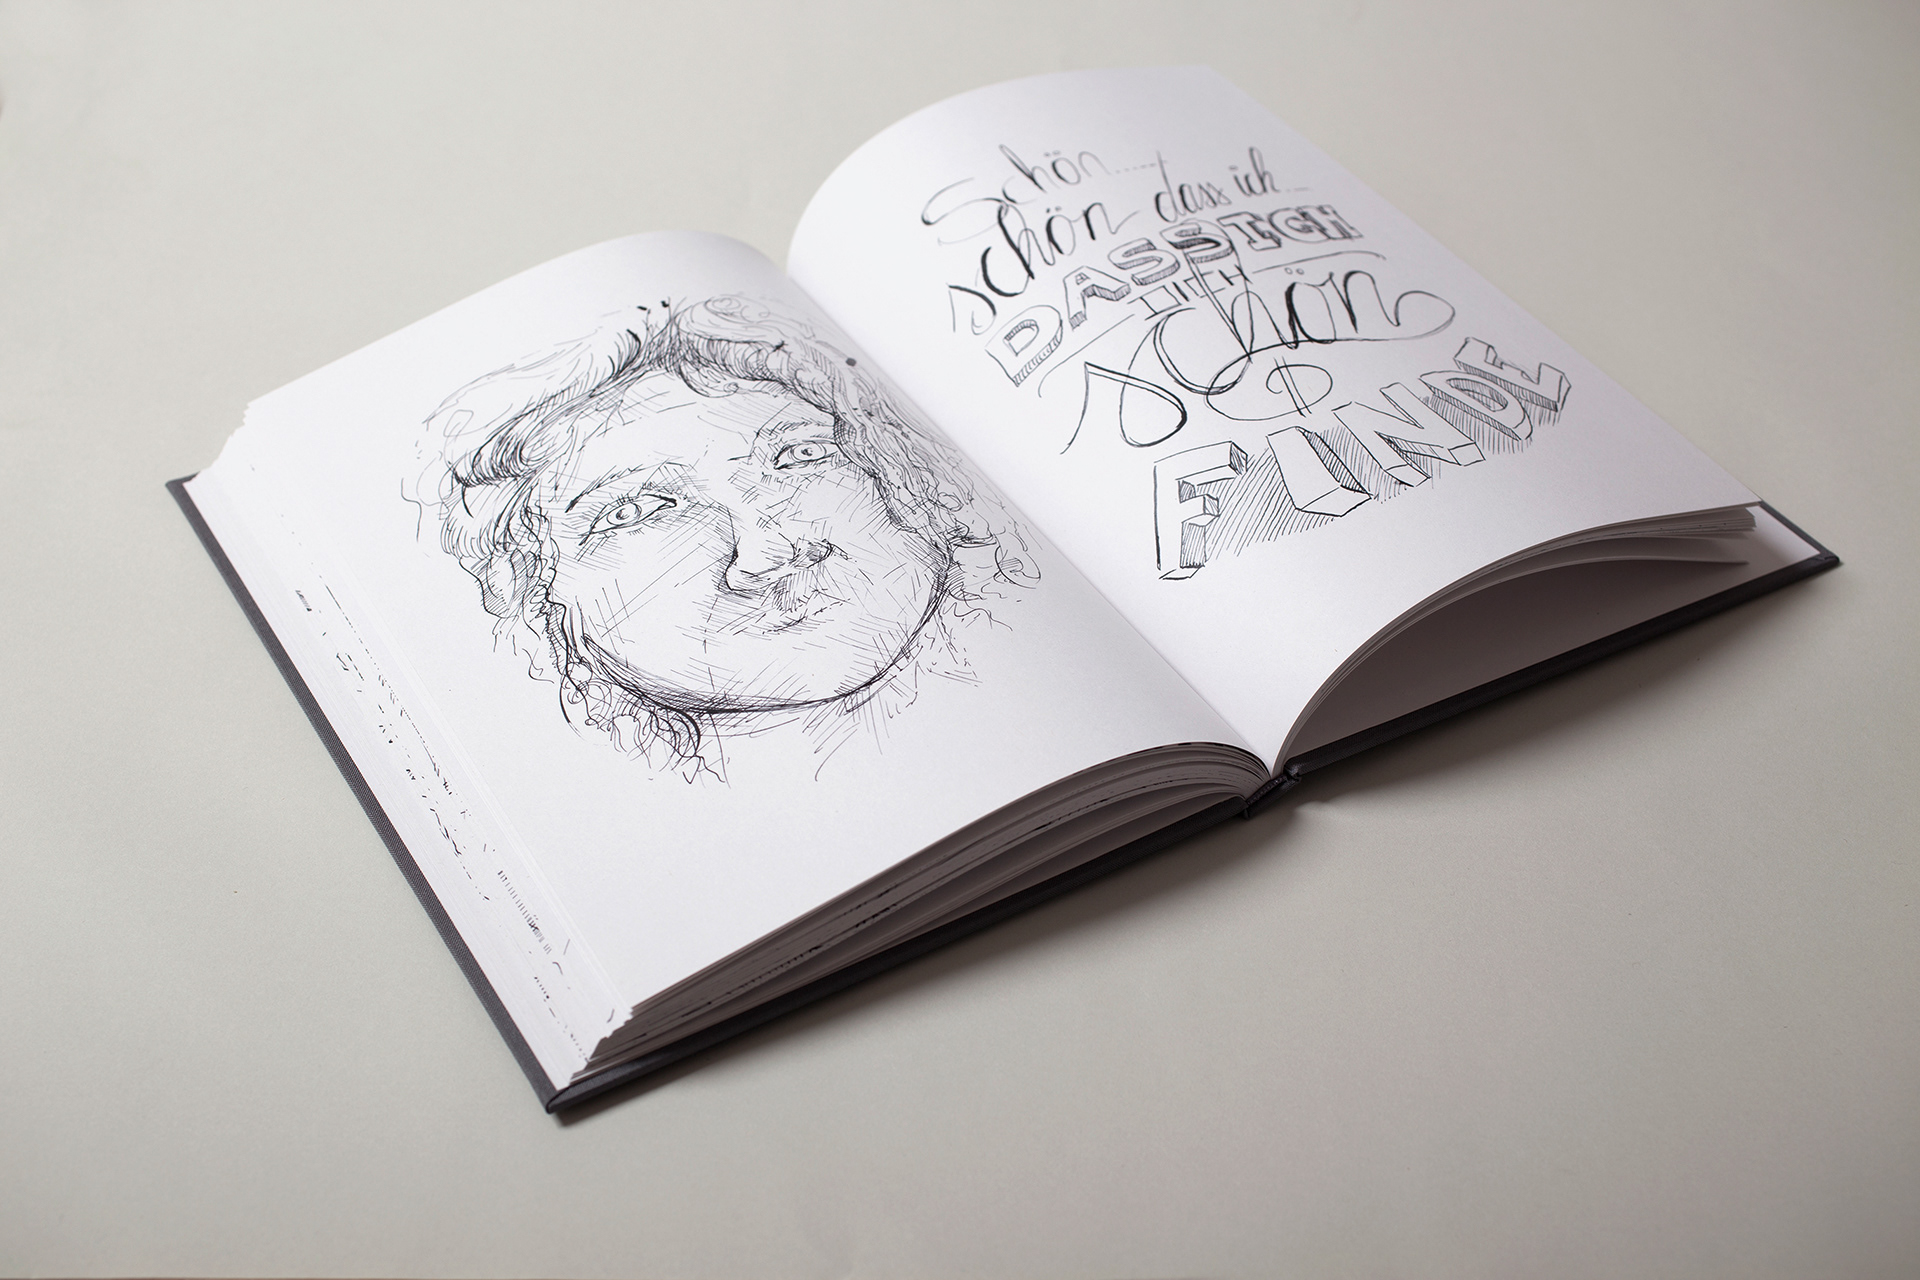 Schön.....
schön dass ich...
DASS ICH
ICH
schön
FINDE